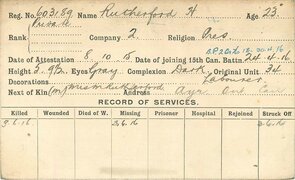 Reg. No. 603189 Name Rutherford H Age 23
Rank Private Company 2 Religion Pres
Date of Attestation 8.10.15 Date of joining 15th Can. Battn. 24.4.16
Height 5.9½ Eyes Gray Complexion Dark Original Unit 34
Decorations Labourer
Next of Kin (m) Mrs M Rutherford Address Ayr Ont Can
RECORD OF SERVICES.
Killed Wounded Died of W. Missing Prisoner Hospital Rejoined Struck Off